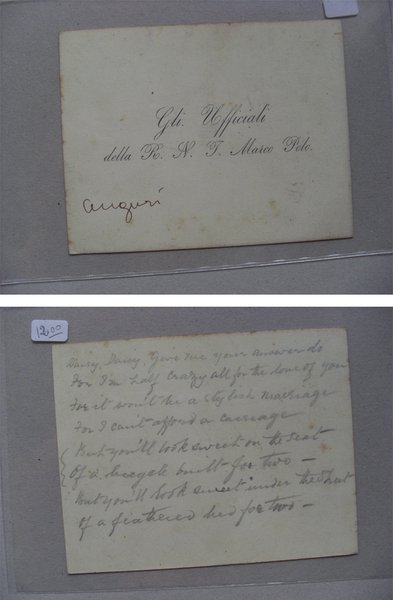 Gli Ufficiali
della R. N. T. Marco Polo.
auguri
12.00
Daisy, Daisy, Give me your answer do
For I'm half crazy all for the love of you
For it won't be a stylish marriage
For I can't afford a carriage
But you'll look sweet on the seat
Of a bicycle built for two —
But you'll look sweet under the sheet
Of a feathered bed for two —